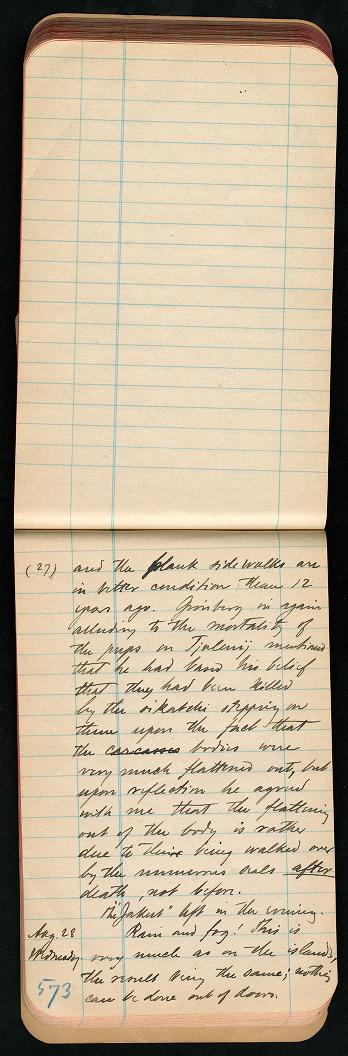 (27) and the plank sidewalks are
in better condition than 12
years ago. Grünberg in again
alluding to the mortality of
the pups on Tjulenij mentioned
that he had based his belief
that they had been killed
by the sikatchi stepping on
them upon the fact that
the carcasses bodies were
very much flattened out, but
upon reflection he agreed
with me that the flattening
out of the body is rather
due to their being walked over
by the numerous seals after
death not before.
The "Jakut" left in the evening.
Aug. 28 Rain and fog! This is
Wednesday very much as on the islands,
the result being the same; nothing
can be done out of doors.
573